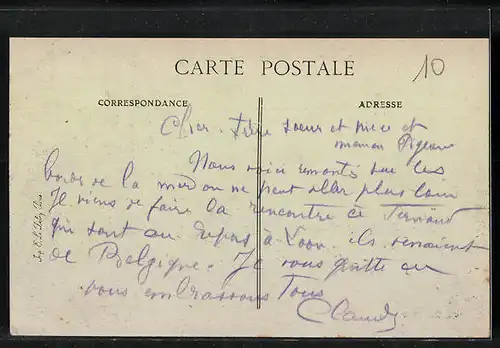 CARTE POSTALE
10
CORRESPONDANCE
ADRESSE
Cher frère soeur et nièce et
maman Pigeon
Nous voici remonté sur les
bords de la mer on ne peut aller plus loin
Je viens de faire la rencontre de Fernand
qui sont au repos à Loon ils venaient
de Belgique. Je vous quitte en
vous embrassons Tous
Claudy